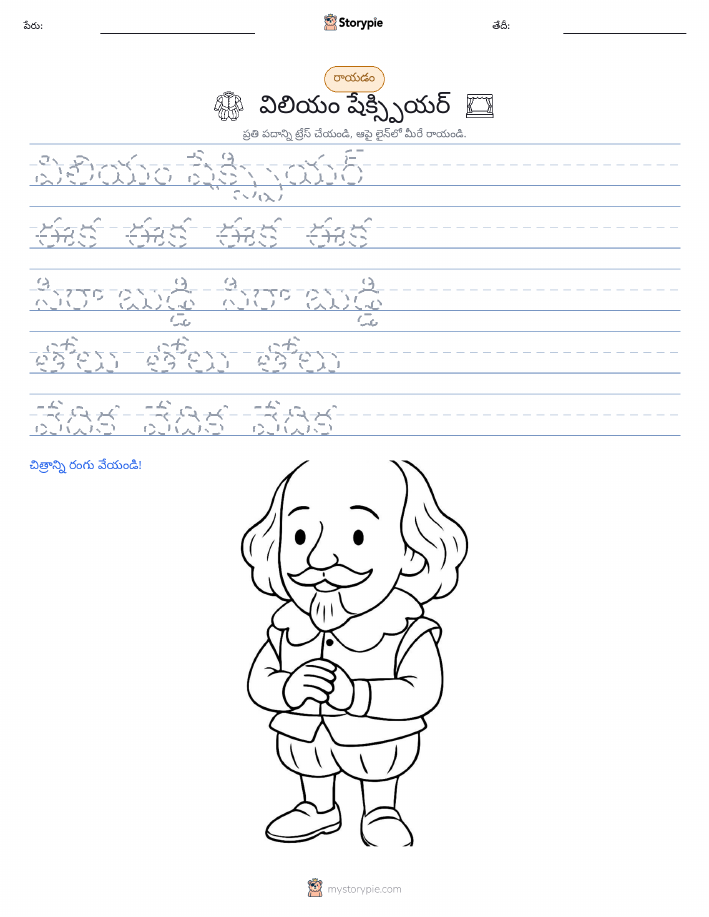 పేరు:
Storypie
తేదీ:
రాయడం
విలియం షేక్స్పియర్
ప్రతి పదాన్ని ట్రేస్ చేయండి, ఆపై లైన్‌లో మీరే రాయండి.
విలియం షేక్స్పియర్
ఈక ఈక ఈక ఈక
సిరా బుడ్డి సిరా బుడ్డి
తోలు తోలు తోలు
వేదిక వేదిక వేదిక
చిత్రాన్ని రంగు వేయండి!
mystorypie.com